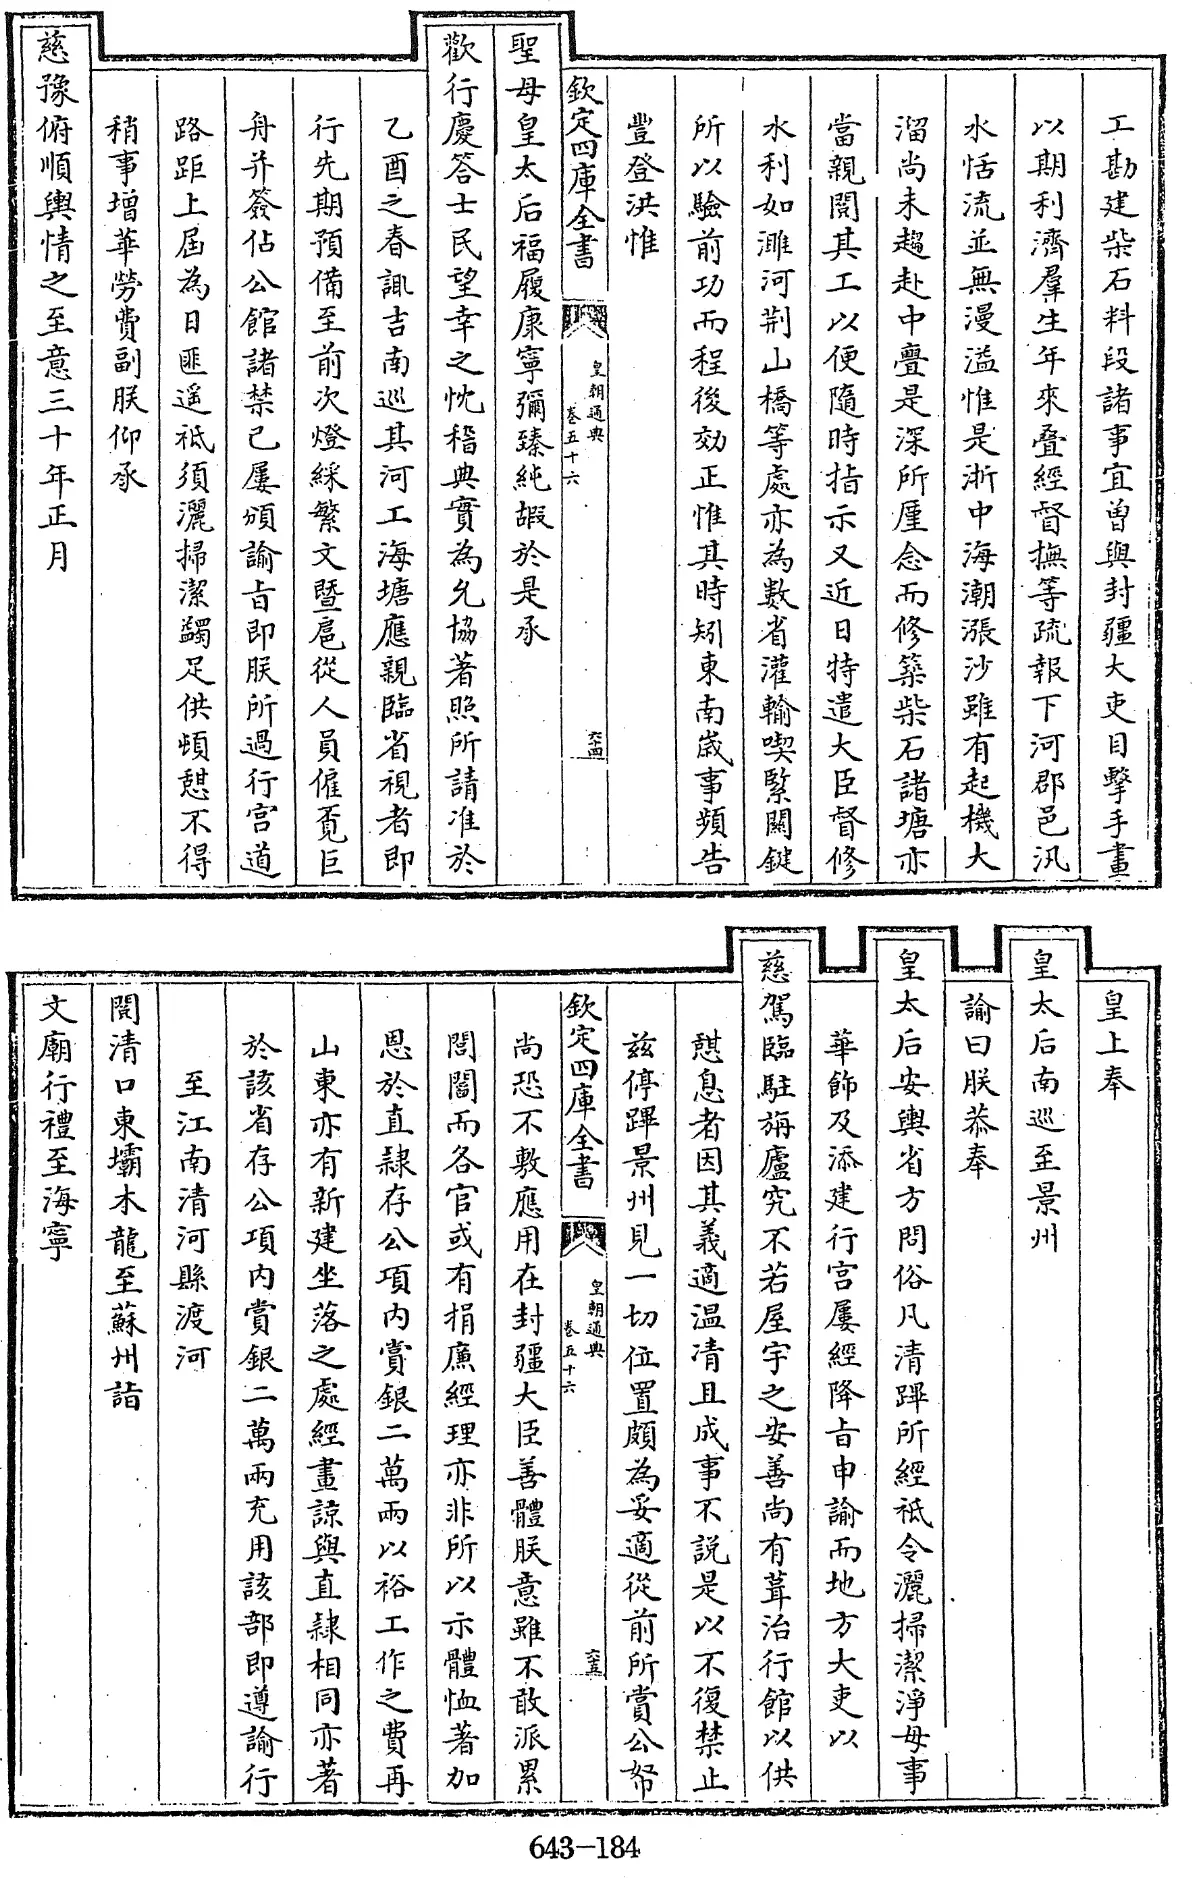 工勘建柴石料段諸事宜曾與封疆大吏目擊手畫
以期利濟羣生年來疊經督撫等疏報下河郡邑汛
水恬流並無漫溢惟是浙中海潮漲沙雖有起機大
溜尚未趨赴中亹是深所厪念而修築柴石諸塘亦
當親閱其工以便隨時指示又近日特遣大臣督修
水利如濉河荆山橋等處亦為數省灌輸喫緊關鍵
所以驗前功而程後効正惟其時矧東南歲事頻告
豐登洪惟
欽定四庫全書
皇朝通典
卷五十六
六十四
聖母皇太后福履康寧彌臻純嘏於是承
歡行慶答士民望幸之忱稽典實為允協著照所請准於
乙酉之春諏吉南巡其河工海塘應親臨省視者即
行先期預備至前次燈綵繁文暨扈從人員僱覓巨
舟并簽佔公館諸禁已屢頒諭旨即朕所過行宮道
路距上屆為日匪遥祗須灑掃潔蠲足供頓憇不得
稍事增華勞費副朕仰承
慈豫俯順輿情之至意三十年正月
皇上奉
皇太后南巡至景州
諭曰朕恭奉
皇太后安輿省方問俗凡清蹕所經祗令灑掃潔淨毋事
華飾及添建行宮屢經降旨申諭而地方大吏以
慈駕臨駐旃廬究不若屋宇之安善尚有葺治行館以供
憇息者因其義適温凊且成事不説是以不復禁止
兹停蹕景州見一切位置頗為妥適從前所賞公帑
欽定四庫全書
皇朝通典
卷五十六
六十五
尚恐不敷應用在封疆大臣善體朕意雖不敢派累
閭閻而各官或有捐廉經理亦非所以示體恤著加
恩於直隸存公項内賞銀二萬兩以裕工作之費再
山東亦有新建坐落之處經畫諒與直隸相同亦著
於該省存公項内賞銀二萬兩充用該部即遵諭行
至江南清河縣渡河
閱清口東壩木龍至蘇州詣
文廟行禮至海寧
643-184